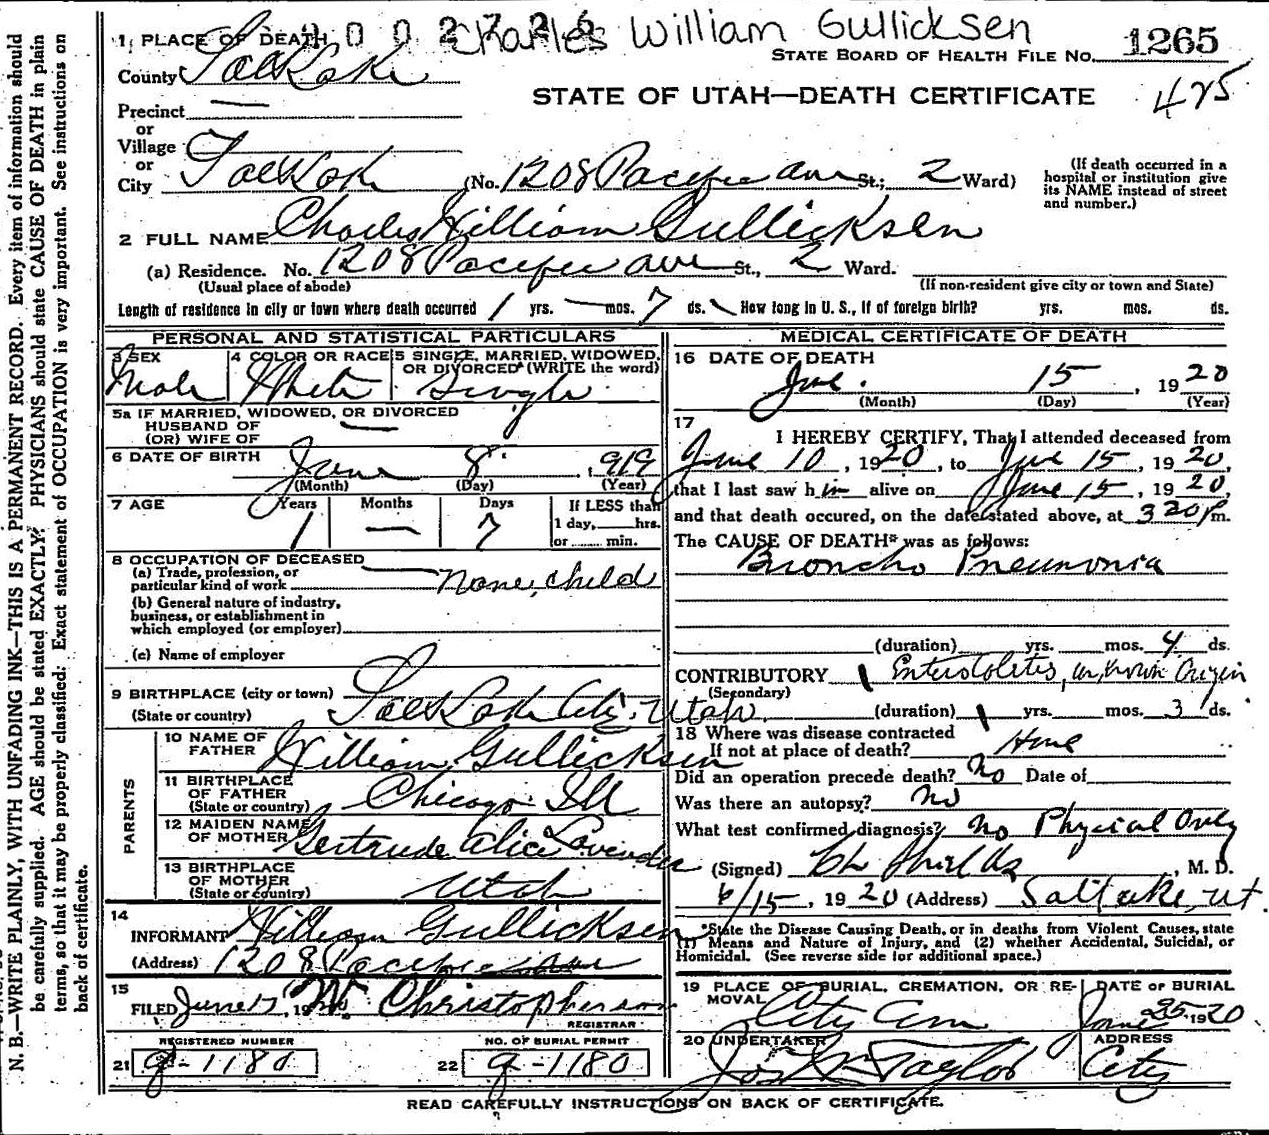 Charles William Gullicksen
0 0 2 7 2 6
STATE BOARD OF HEALTH FILE NO. 1265
475
STATE OF UTAH—DEATH CERTIFICATE
1 PLACE OF DEATH
County Salt Lake
Precinct —
or
Village
or
City Salt Lake (No. 1208 Pacific Ave St.; 2 Ward)
(If death occurred in a hospital or institution give its NAME instead of street and number.)
2 FULL NAME Charles William Gullicksen
(a) Residence. No. 1208 Pacific Ave St., 2 Ward.
(Usual place of abode) (If non-resident give city or town and State)
Length of residence in city or town where death occurred 1 yrs. — mos. 7 ds. How long in U. S., if of foreign birth? yrs. mos. ds.
PERSONAL AND STATISTICAL PARTICULARS
3 SEX Male
4 COLOR OR RACE White
5 SINGLE, MARRIED, WIDOWED, OR DIVORCED (WRITE the word) Single
5a IF MARRIED, WIDOWED, OR DIVORCED
HUSBAND OF
(OR) WIFE OF —
6 DATE OF BIRTH June 8, 919
(Month) (Day) (Year)
7 AGE Years 1 Months — Days 7
If LESS than
1 day, hrs.
or min.
8 OCCUPATION OF DECEASED
(a) Trade, profession, or
particular kind of work — none, child
(b) General nature of industry,
business, or establishment in
which employed (or employer)
(c) Name of employer
9 BIRTHPLACE (city or town)
(State or country) Salt Lake City, Utah
PARENTS
10 NAME OF
FATHER William Gullicksen
11 BIRTHPLACE
OF FATHER
(State or country) Chicago Ill
12 MAIDEN NAME
OF MOTHER Gertrude Alice Lavender
13 BIRTHPLACE
OF MOTHER
(State or country) Utah
14
INFORMANT William Gullicksen
(Address) 1208 Pacific Ave
15
FILED June , 19 Christopherson
REGISTRAR
REGISTERED NUMBER
21 g-1180
NO. OF BURIAL PERMIT
22 g-1180
MEDICAL CERTIFICATE OF DEATH
16 DATE OF DEATH
June. 15, 1920
(Month) (Day) (Year)
17
I HEREBY CERTIFY, That I attended deceased from
June 10, 1920, to June 15, 1920,
that I last saw him alive on June 15, 1920,
and that death occured, on the date stated above, at 3 20 P m.
The CAUSE OF DEATH* was as follows:
Broncho Pneumonia
(duration) yrs. mos. 4 ds.
CONTRIBUTORY Enterocolites, unknown origin
(Secondary)
(duration) yrs. mos. 3 ds.
18 Where was disease contracted
If not at place of death? Home
Did an operation precede death? No Date of
Was there an autopsy? No
What test confirmed diagnosis? No Physical Only
(Signed) Shields, M. D.
6/15, 1920 (Address) Salt Lake, Ut.
*State the Disease Causing Death, or in deaths from Violent Causes, state
(1) Means and Nature of Injury, and (2) whether Accidental, Suicidal, or
Homicidal. (See reverse side for additional space.)
19 PLACE OF BURIAL, CREMATION, OR RE-
MOVAL City Cem
DATE OF BURIAL
June 1920
20 UNDERTAKER Jos Wm Taylor
ADDRESS
City
READ CAREFULLY INSTRUCTIONS ON BACK OF CERTIFICATE.
N. B.—WRITE PLAINLY, WITH UNFADING INK—THIS IS A PERMANENT RECORD. Every item of information should
be carefully supplied. AGE should be stated EXACTLY. PHYSICIANS should state CAUSE OF DEATH in plain
terms, so that it may be properly classified. Exact statement of OCCUPATION is very important. See instructions on
back of certificate.